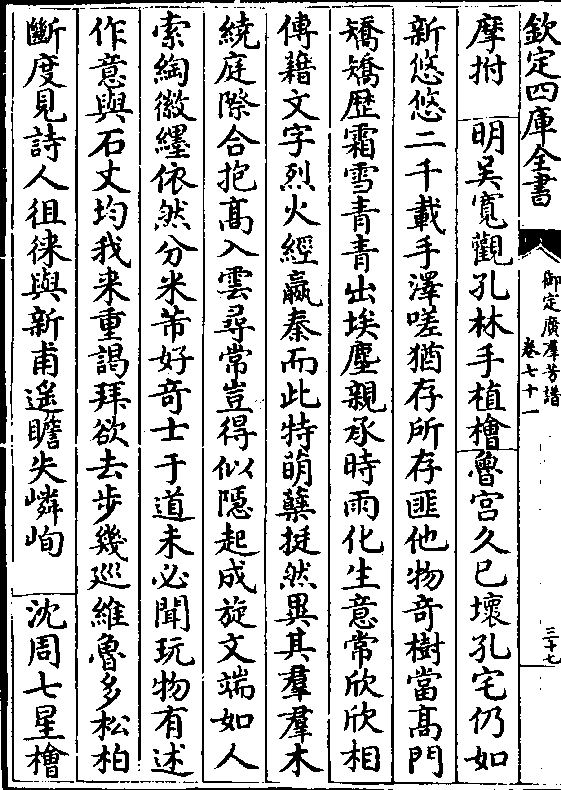 欽定四庫全書
御定廣羣芳譜
卷七十一
三十七
摩拊　明吳寬觀孔林手植檜魯宫久已壞孔宅仍如
新悠悠二千載手澤嗟猶存所存匪他物奇樹當髙門
矯矯歴霜雪青青出埃塵親承時雨化生意常欣欣相
傳籍文字烈火經嬴秦而此特萌蘖挺然異其羣羣木
繞庭際合抱髙入雲尋常豈得似隱起成旋文端如人
索綯徽纆依然分米芾好奇士于道未必聞玩物有述
作意與石丈均我来重謁拜欲去步幾巡維魯多松柏
斷度見詩人徂徠與新甫遥瞻失嶙峋　沈周七星檜